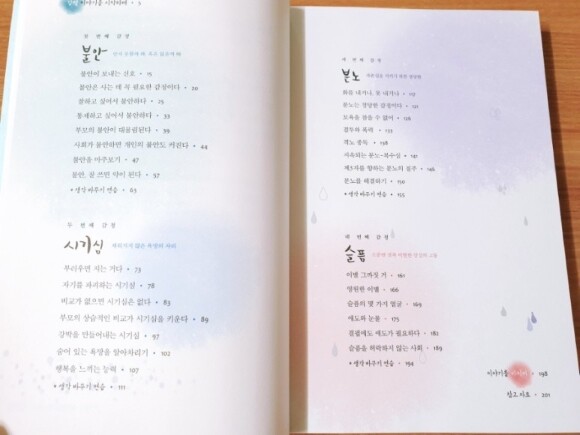 이야기를 시작하며 • 5
첫 번째 감정
불안
불안이 보내는 신호 • 15
불안은 사는 데 꼭 필요한 감정이다 • 20
잘하고 싶어서 불안하다 • 25
통제하고 싶어서 불안하다 • 33
부모의 불안이 대물림된다 • 39
사회가 불안하면 개인의 불안도 커진다 • 44
불안을 마주보기 • 47
불안, 잘 쓰면 약이 된다 • 57
+ 생각 바꾸기 연습 • 63
두 번째 감정
시기심
부러우면 지는 거다 • 73
자기를 파괴하는 시기심 • 78
비교가 없으면 시기심은 없다 • 83
부모의 상습적인 비교가 시기심을 키운다 • 89
강박을 만들어내는 시기심 • 97
숨어 있는 욕망을 알아차리기 • 102
행복을 느끼는 능력 • 107
+ 생각 바꾸기 연습 • 111
세 번째 감정
분노
화를 내거나, 못 내거나 • 117
분노는 정당한 감정이다 • 121
모욕을 참을 수 없어 • 128
결투와 폭력 • 133
격노 중독 • 138
지속되는 분노-복수심 • 142
제3자를 향하는 분노의 불꽃 • 147
분노를 해결하기 • 150
+ 생각 바꾸기 연습 • 155
네 번째 감정
슬픔
이별 그까짓 거 • 161
영원한 이별 • 166
슬픔의 몇 가지 얼굴 • 169
애도와 눈물 • 175
결핍에도 애도가 필요하다 • 182
슬픔을 허락하지 않는 사회 • 189
+ 생각 바꾸기 연습 • 194
이야기를 마치며 • 198
참고 자료 • 201